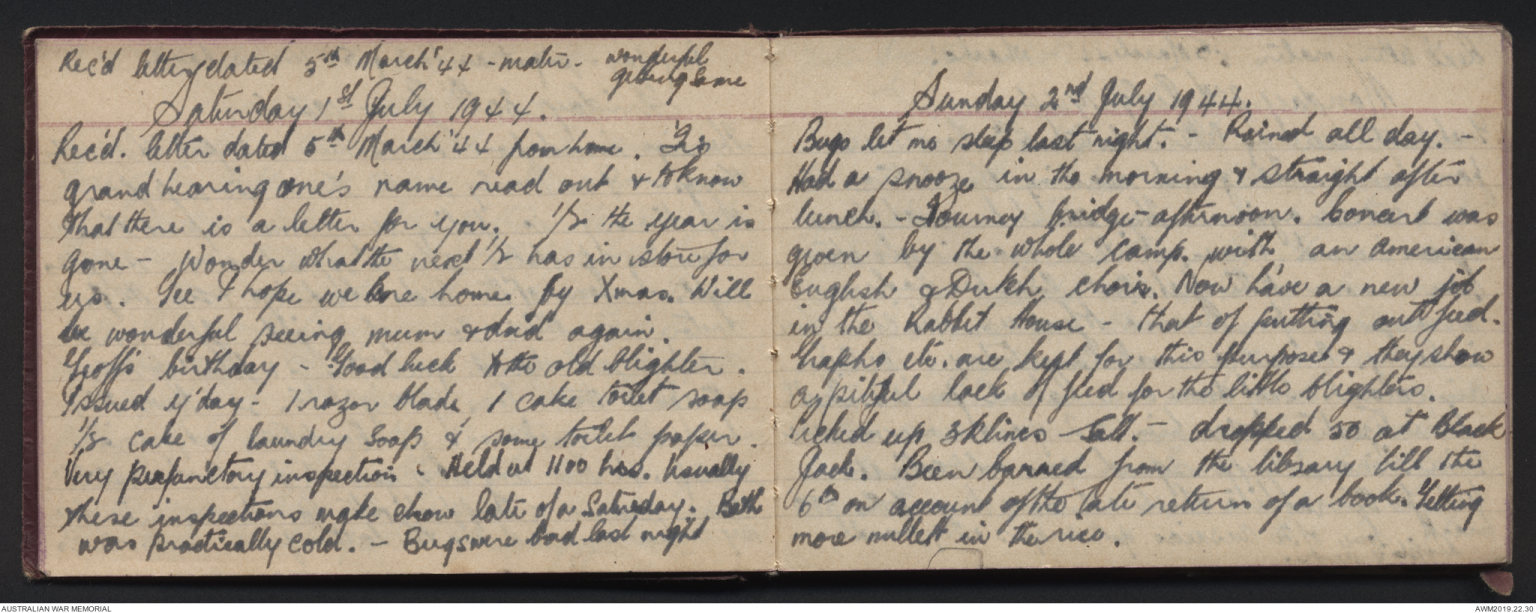 Rec'd letter dated 5th March '44 - mater - wonderful
Saturday 1st July 1944.
Rec'd. letter dated 5th March '44 from home. 'Tis
grand hearing one's name read out & to know
that there is a letter for you. 1/2 the year is
gone - Wonder what the next 1/2 has in store for
us. Gee I hope we are home by Xmas. Will
be wonderful seeing mum & dad again.
Geoff's birthday - Good luck to the old blighter.
Issued y'day - 1 razor blade, 1 cake toilet soap
1/2 cake of laundry soap & some toilet paper.
Very perfunctory inspection. Held at 1100 hrs. Usually
these inspections make chow late of a Saturday. Bath
was practically cold. - Bugs were bad last night
Sunday 2nd July 1944.
Bugs let me sleep last night. - Rained all day. -
Had a snooze in the morning & straight after
lunch. - Tourney bridge - afternoon. Concert was
given by the whole camp with an American
English & Dutch choir. Now have a new job
in the Rabbit House - that of putting out feed.
Graphs etc. are kept for this purpose & they show
a pitiful lack of feed for the little blighters.
Picked up 3 Salt. - dropped 50 at Black
Jack. Been barred from the library till the
6th on account of the late return of a book. Getting
more millett in the rice.
AUSTRALIAN WAR MEMORIAL
AWM2019.22.30